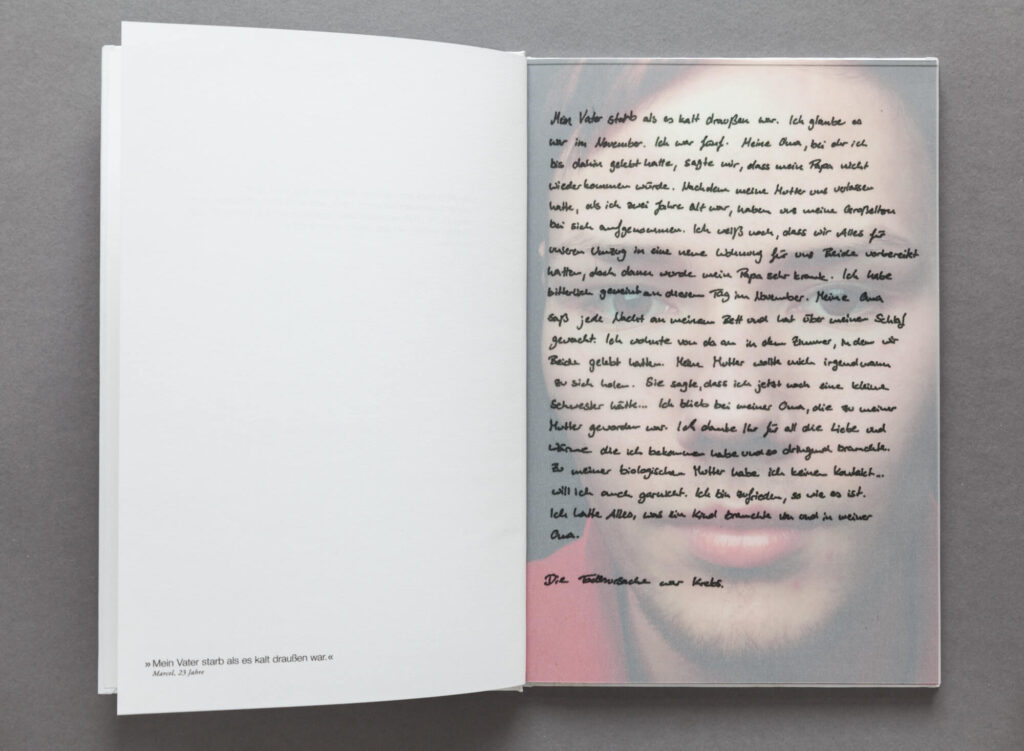 »Mein Vater starb als es kalt draußen war.«
Marcel, 23 Jahre
Mein Vater starb als es kalt draußen war. Ich glaube es
war im November. Ich war fünf. Meine Oma, bei der ich
bis dahin gelebt hatte, sagte mir, dass mein Papa nicht
wiederkommen würde. Nachdem meine Mutter uns verlassen
hatte, als ich zwei Jahre alt war, haben uns meine Großeltern
bei sich aufgenommen. Ich weiß noch, dass wir Alles für
unseren Umzug in eine neue Wohnung für uns Beide vorbereitet
hatten, doch dann wurde mein Papa sehr krank. Ich habe
bitterlich geweint an diesem Tag im November. Meine Oma
saß jede Nacht an meinem Bett und hat über meinen Schlaf
gewacht. Ich wohnte von da an in dem Zimmer, in dem wir
Beide gelebt hatten. Meine Mutter wollte mich irgendwann
zu sich holen. Sie sagte, dass ich jetzt noch eine kleine
Schwester hätte... Ich blieb bei meiner Oma, die zu meiner
Mutter geworden war. Ich danke Ihr für all die Liebe und
Wärme die ich bekommen habe und so dringend brauchte.
Zu meiner biologischen Mutter habe ich keinen Kontakt...
will ich auch garnicht. Ich bin zufrieden, so wie es ist.
Ich hatte Alles, was ein Kind brauchte von und in meiner
Oma.
Die Todesursache war Krebs.